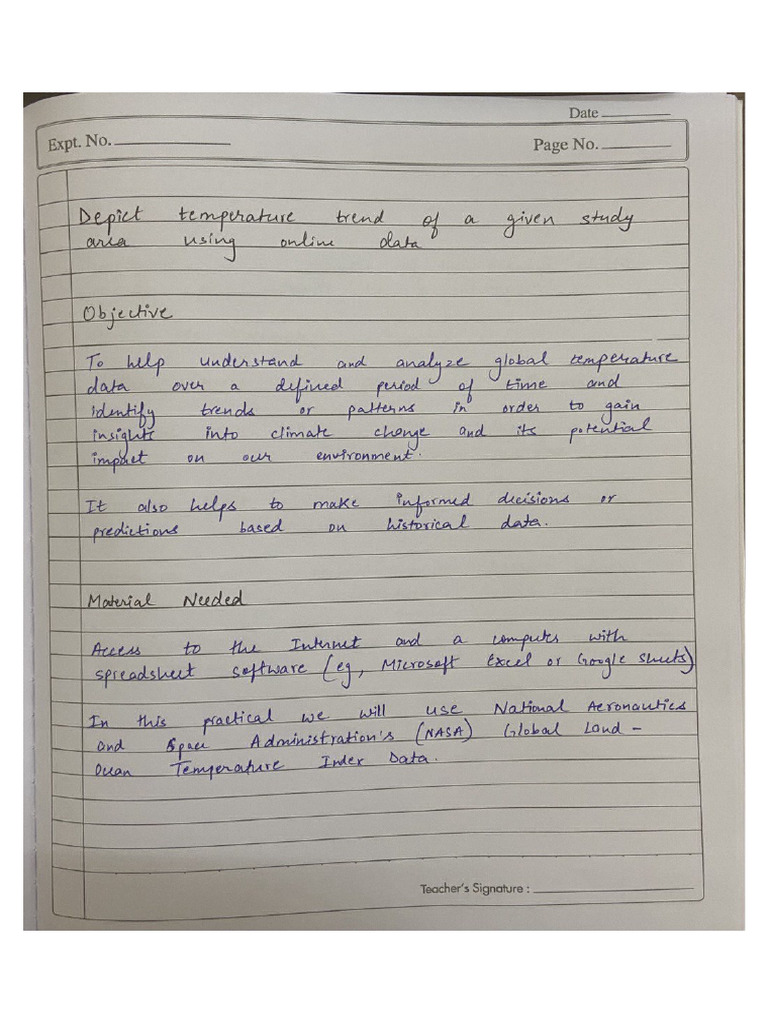 Date
Expt. No.
Page No.
Depict temperature trend of a given study
area using online data
Objective
To help understand and analyze global temperature
data over a defined period of time and
identify trends or patterns in order to gain
insights into climate change and its potential
impact on our environment.
It also helps to make informed decisions or
predictions based on historical data.
Material Needed
Access to the Internet and a computer with
spreadsheet software (eg, Microsoft Excel or Google Sheets)
In this practical we will use National Aeronautics
and Space Administration's (NASA) Global Land -
Ocean Temperature Index Data.
Teacher's Signature :